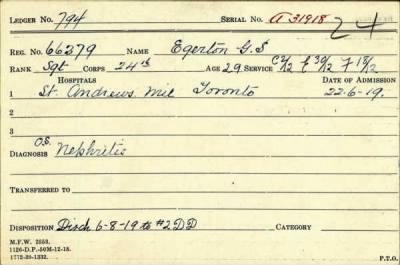 LEDGER NO. 794 SERIAL NO. A 31918 24
REG. NO. 66279 NAME Egerton G.S
RANK Sgt CORPS 24th AGE 29 SERVICE C 2/12 E 30/12 F 18/12
HOSPITALS DATE OF ADMISSION
1 St. Andrews. Mil Toronto 22-6-19.
2
3
O.S.
DIAGNOSIS Nephritis
TRANSFERRED TO
DISPOSITION Disch 6-8-19 to #2 DD CATEGORY
M.F.W. 2553.
1126-D.P.-50M-12-18.
1772-39-1332. P.T.O.